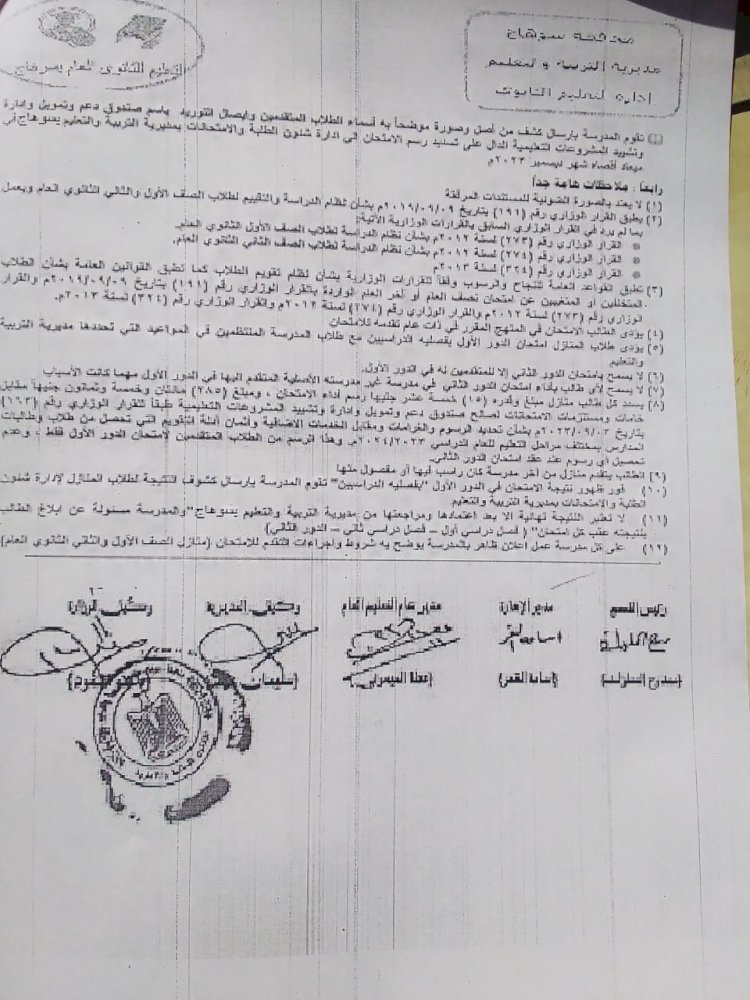 محافظة سوهاج
مديرية التربية والتعليم
إدارة التعليم الثانوى
التعليم الثانوى العام بسوهاج
تقوم المدرسة بإرسال كشف من أصل وصورة موضحاً به أسماء الطلاب المتقدمين وايصال التوريد باسم صندوق دعم وتمويل وإدارة
وتشييد المشروعات التعليمية الدال على تسديد رسم الامتحان الى ادارة شئون الطلبة والامتحانات بمديرية التربية والتعليم بسوهاج في
ميعاد أقصاه شهر ديسمبر ٢٠٢٣م
رابعاً : ملاحظات هامة جداً
(١) لا يعتد بالصورة الضوئية للمستندات المرفقة
(٢) يطبق القرار الوزاري رقم (١٩١) بتاريخ ٢٠١٩/٠٩/٠٩م بشأن نظام الدراسة والتقييم لطلاب الصف الأول والثاني الثانوي العام ويعمل
بما لم يرد في القرار الوزاري السابق بالقرارات الوزارية الآتية:
القرار الوزاري رقم (٢٧٣) لسنة ٢٠١٢م بشأن نظام الدراسة لطلاب الصف الأول الثانوي العام.
القرار الوزاري رقم (٢٧٤) لسنة ٢٠١٢م بشأن نظام الدراسة لطلاب الصف الثاني الثانوي العام.
القرار الوزاري رقم (٣٢٤) لسنة ٢٠١٣م
(٣) تطبق القواعد العامة للنجاح والرسوب وفقاً للقرارات الوزارية بشأن نظام تقويم الطلاب كما تطبق القوانين العامة بشأن الطلاب
المتخلفين أو المتغيبين عن امتحان نصف العام أو آخر العام الواردة بالقرار الوزاري رقم (١٩١) بتاريخ ٢٠١٩/٠٩/٠٩م والقرار
الوزاري رقم (٢٧٣) لسنة ٢٠١٢م والقرار الوزاري رقم (٢٧٤) لسنة ٢٠١٢م والقرار الوزاري رقم (٣٢٤) لسنة ٢٠١٣م.
(٤) يؤدى الطالب الامتحان في المنهج المقرر في ذات عام تقدمه للامتحان
(٥) يؤدى طلاب المنازل امتحان الدور الأول بفصليه الدراسيين مع طلاب المدرسة المنتظمين في المواعيد التي تحددها مديرية التربية
والتعليم
(٦) لا يسمح بامتحان الدور الثاني إلا للمتقدمين له في الدور الأول.
(٧) لا يسمح لأي طالب بأداء امتحان الدور الثاني في مدرسة غير مدرسته الأصلية المتقدم اليها في الدور الأول مهما كانت الأسباب
(٨) يسدد كل طالب منازل مبلغ وقدره (١٥) خمسة عشر جنيها رسم أداء الامتحان ، ومبلغ (٢٨٥) مائتان وخمسة وثمانون جنيهاً مقابل
خامات ومستلزمات الامتحانات لصالح صندوق دعم وتمويل وإدارة وتشييد المشروعات التعليمية طبقا للقرار الوزاري رقم (١٦٣)
بتاريخ ٢٠٢٣/٠٩/٠٣م بشأن تحديد الرسوم والغرامات ومقابل الخدمات الاضافية وأثمان أدلة التقويم التي تحصل من طلاب وطالبات
المدارس بمختلف مراحل التعليم للعام الدراسي ٢٠٢٤/٢٠٢٣م. وهذا الرسم من الطلاب المتقدمين لامتحان الدور الأول فقط ، وعدم
تحصيل أي رسوم عند عقد امتحان الدور الثاني.
(٩) الطالب يتقدم منازل من آخر مدرسة كان راسب فيها أو مفصول منها
(١٠) فور ظهور نتيجة الامتحان في الدور الأول "بفصليه الدراسيين" تقوم المدرسة بإرسال كشوف النتيجة لطلاب المنازل لإدارة شئون
الطلبة والامتحانات بمديرية التربية والتعليم
(١١) لا تعتبر النتيجة نهائية الا بعد اعتمادها ومراجعتها من مديرية التربية والتعليم بسوهاج "والمدرسة مسئولة عن ابلاغ الطالب
بنتيجته عقب كل امتحان" ( فصل دراسي أول – فصل دراسي ثاني – الدور الثاني)
(١٢) على كل مدرسة عمل اعلان ظاهر بالمدرسة يوضح به شروط وإجراءات التقدم للامتحان (منازل الصف الأول والثاني الثانوي العام)
رئيس القسم مدير الإدارة مدير عام التعليم العام وكيل المديرية وكيل الوزارة